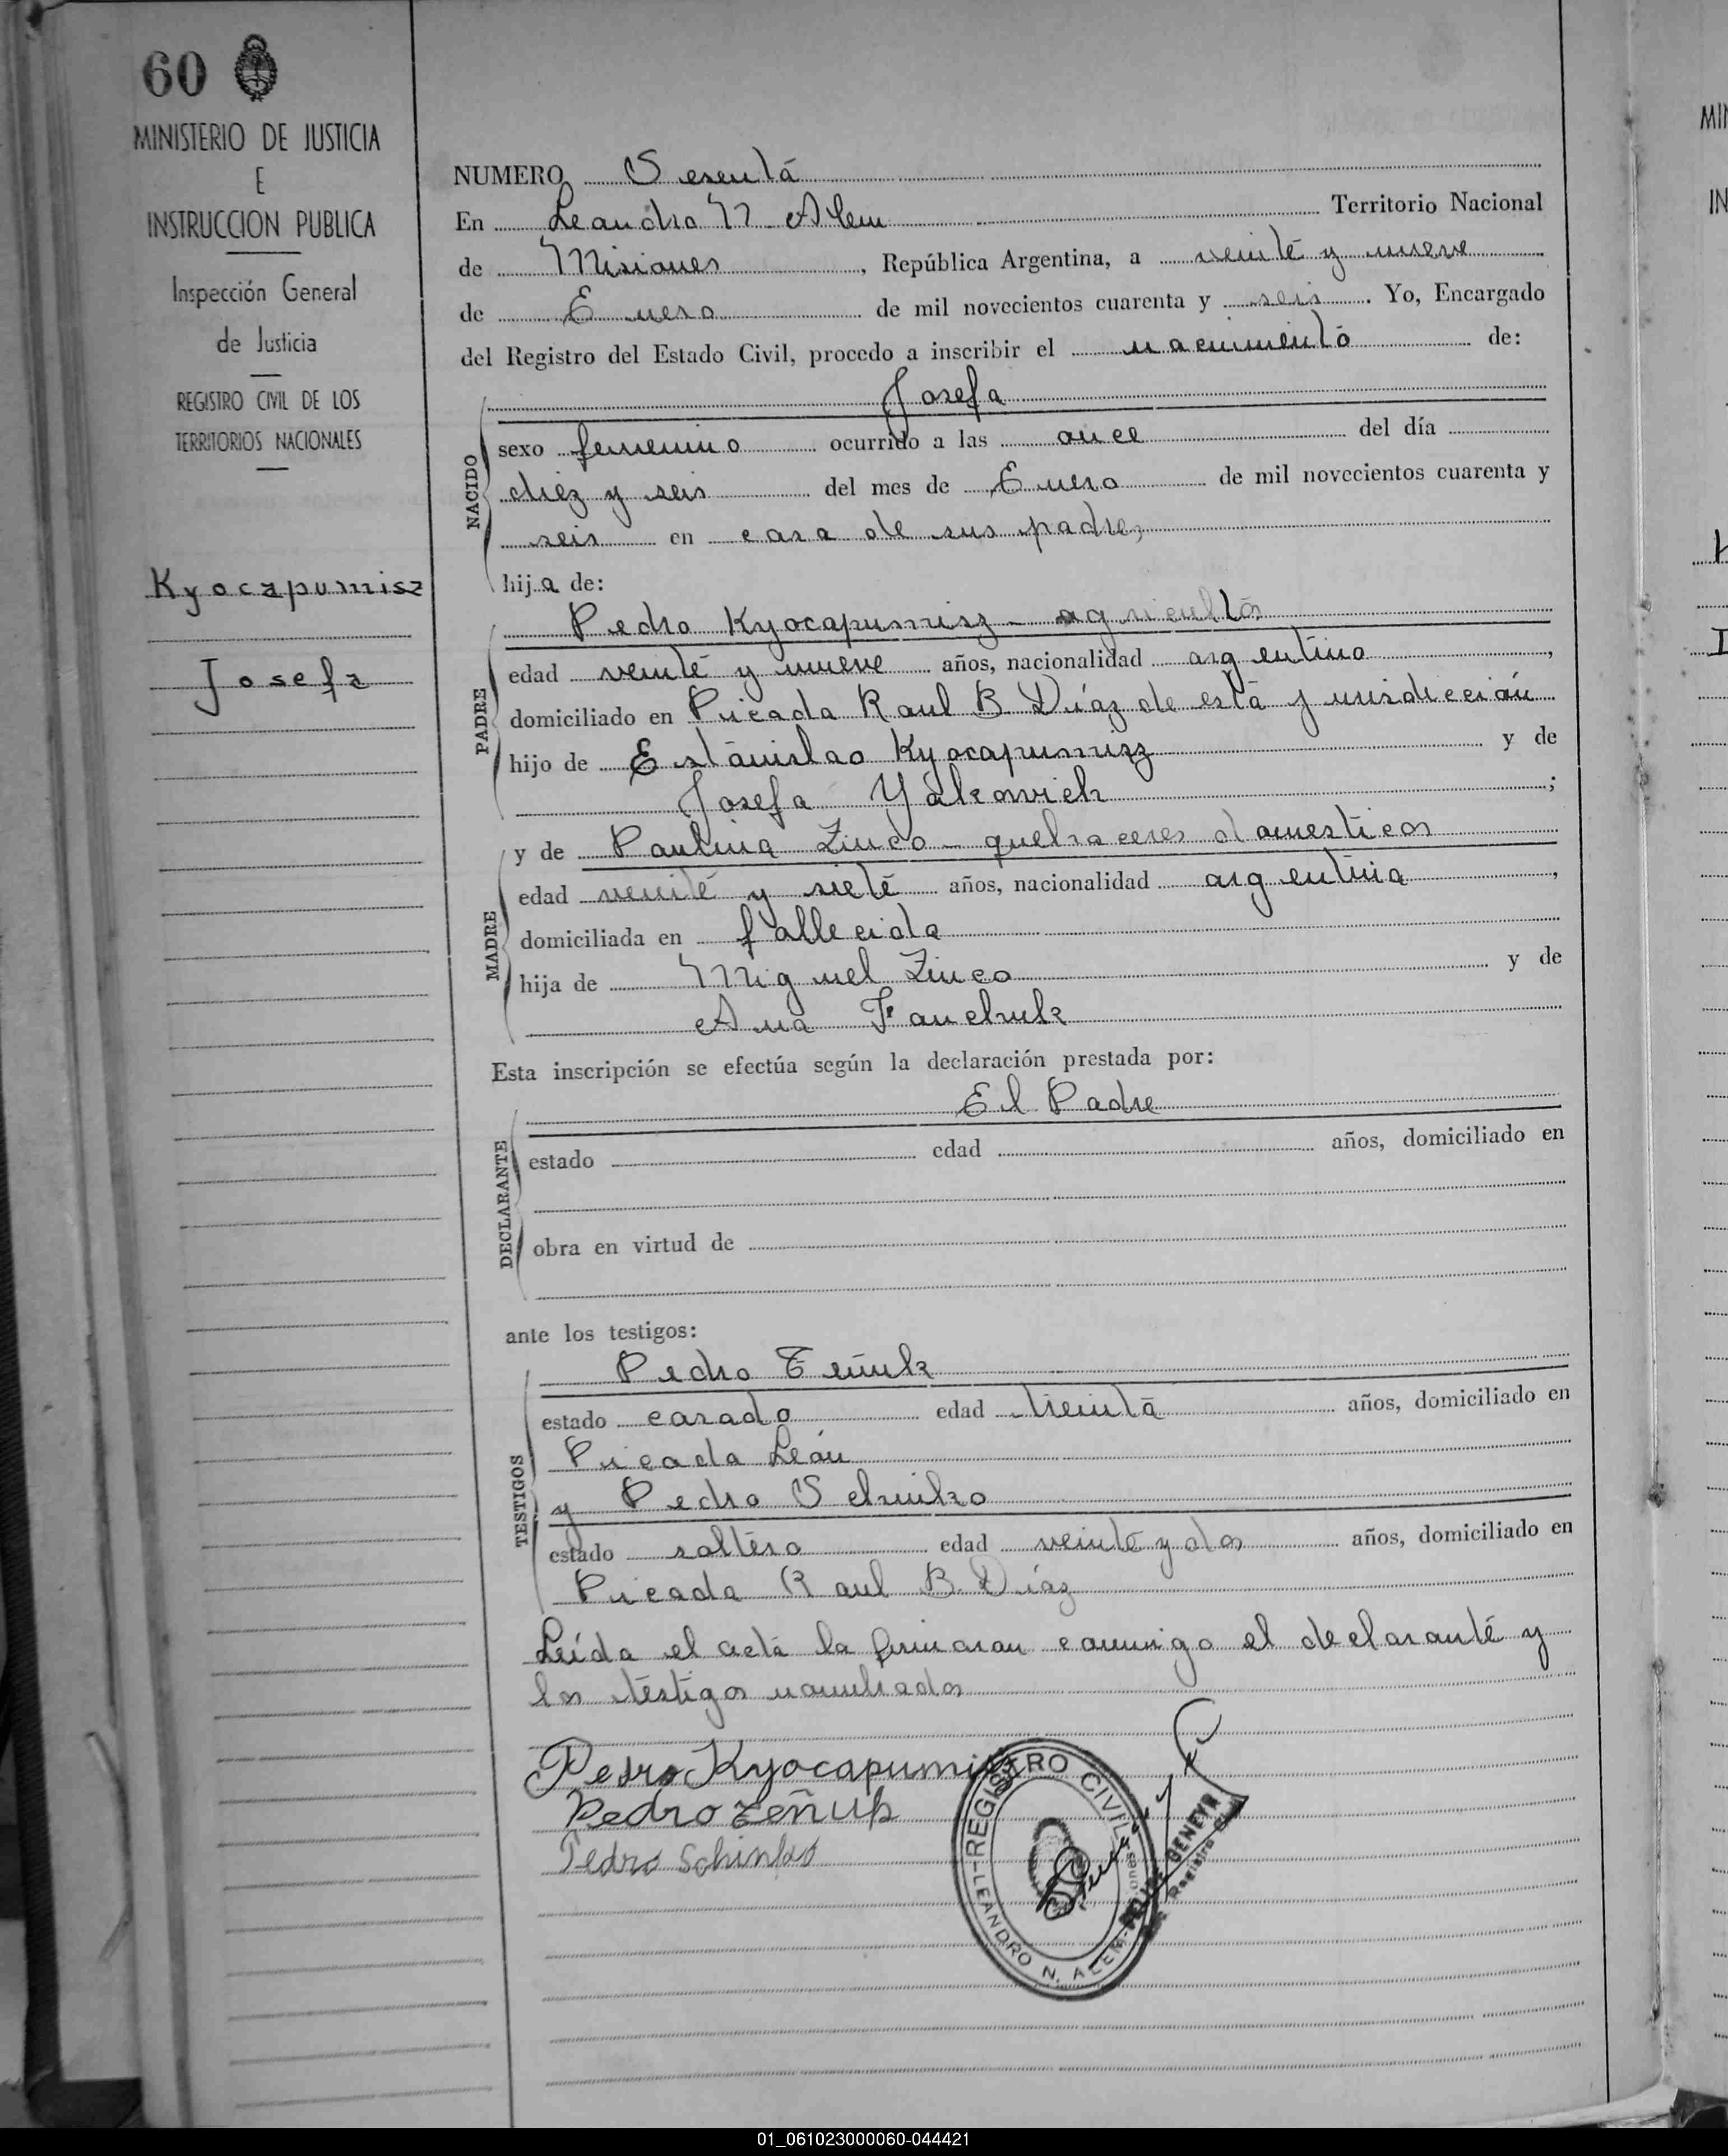 60
MINISTERIO DE JUSTICIA
E
INSTRUCCION PUBLICA
Inspección General
de Justicia
REGISTRO CIVIL DE LOS
TERRITORIOS NACIONALES
Kyocapumisz
Josefa
NUMERO Sesenta
En Leandro N. Alem Territorio Nacional
de Misiones, República Argentina, a veinte y nueve
de Enero de mil novecientos cuarenta y seis. Yo, Encargado
del Registro del Estado Civil, procedo a inscribir el nacimiento de:
Josefa
NACIDO
sexo femenino ocurrido a las once del día
diez y seis del mes de Enero de mil novecientos cuarenta y
seis en casa de sus padres
hija de:
Pedro Kyocapumisz - agricultor
PADRE
edad veinte y nueve años, nacionalidad argentino,
domiciliado en Picada Raul B. Díaz de esta jurisdicción
hijo de Estanislao Kyocapumisz y de
Josefa Yakowich;
y de Paulina Zinco - quehaceres domesticos
MADRE
edad veinte y siete años, nacionalidad argentina,
domiciliada en fallecida
hija de Miguel Zinco y de
Ana Fanchuk
Esta inscripción se efectúa según la declaración prestada por:
El Padre
DECLARANTE
estado edad años, domiciliado en
obra en virtud de
ante los testigos:
Pedro Zeñuk
TESTIGOS
estado casado edad treinta años, domiciliado en
Picada León
y Pedro Schinko
estado soltero edad veinte y dos años, domiciliado en
Picada Raul B. Díaz
Leída el acta la firmaron conmigo el declarante y
los testigos nombrados
Pedro Kyocapumisz
Pedro Zeñuk
Pedro Schinko
REGISTRO CIVIL
LEANDRO N. ALEM
GENEYR
Registro
01_061023000060-044421